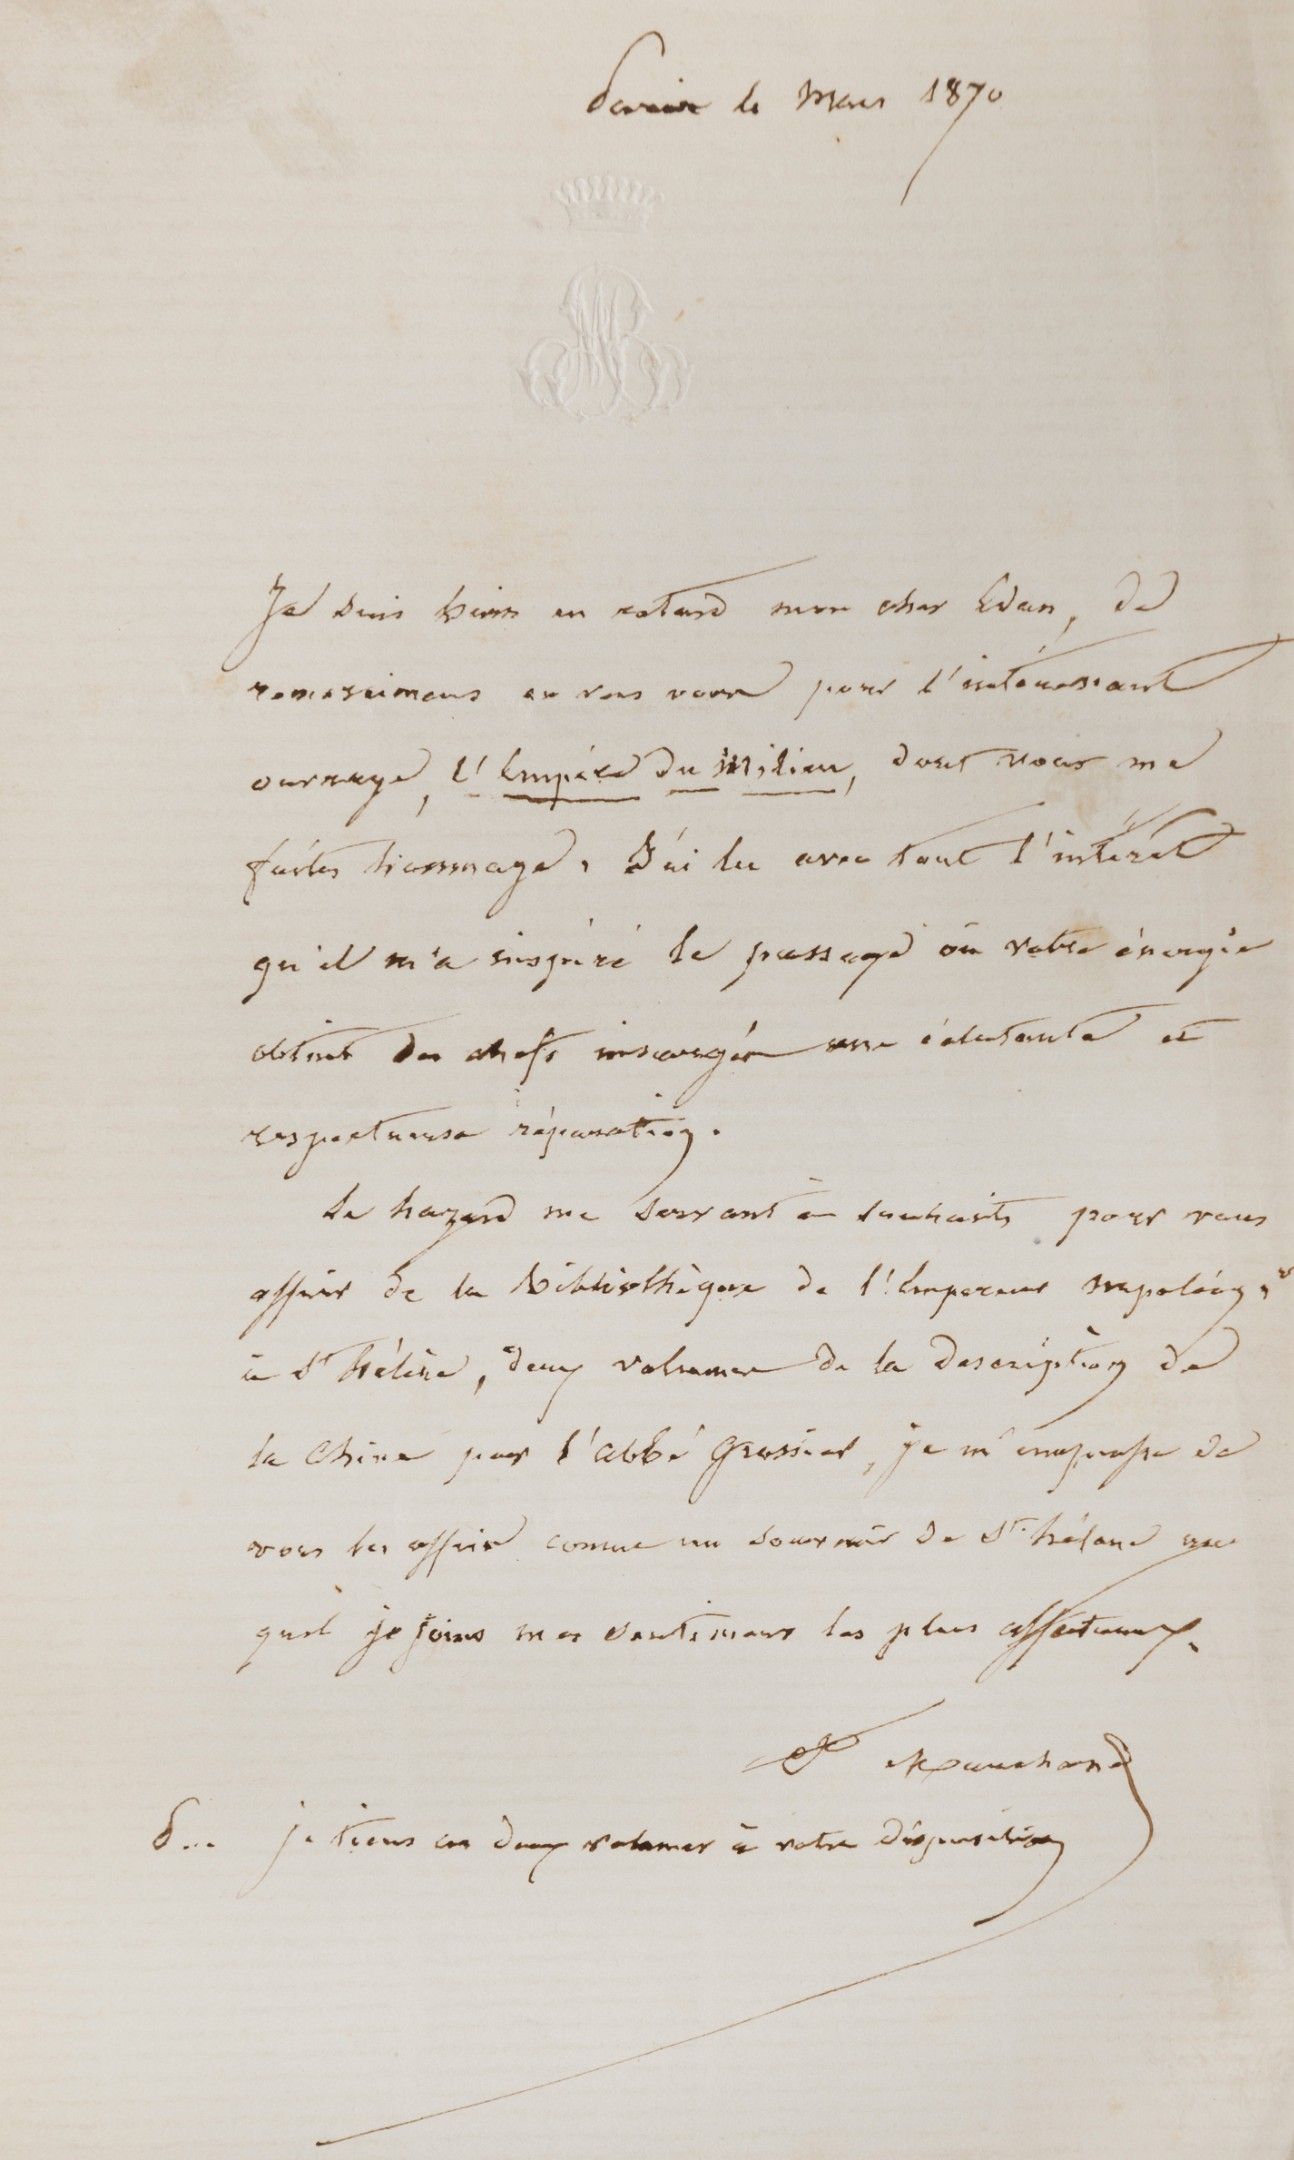 le Mars 1870
Je suis bien en retard mon cher Edan, de
remerciemens envers vous pour l'intéressant
ouvrage, l'Empire du Milieu, dont vous me
faites hommage. J'ai lu avec tout l'intérêt
qu'il m'a inspiré le passage où votre énergie
obtint des chefs insurgés une éclatante et
respectueuse réparation.
Le hazard me servant à souhaits pour vous
offrir de la bibliothèque de l'Empereur Napoléon 1er
à St Hélène, deux volumes de la description de
la Chine par l'abbé Grosier, je m'empresse de
vous les offrir comme un souvenir de St Hélène au
quel je joins mes sentimens les plus affectueux.
Marchand
je tiens ces deux volumes à votre disposition